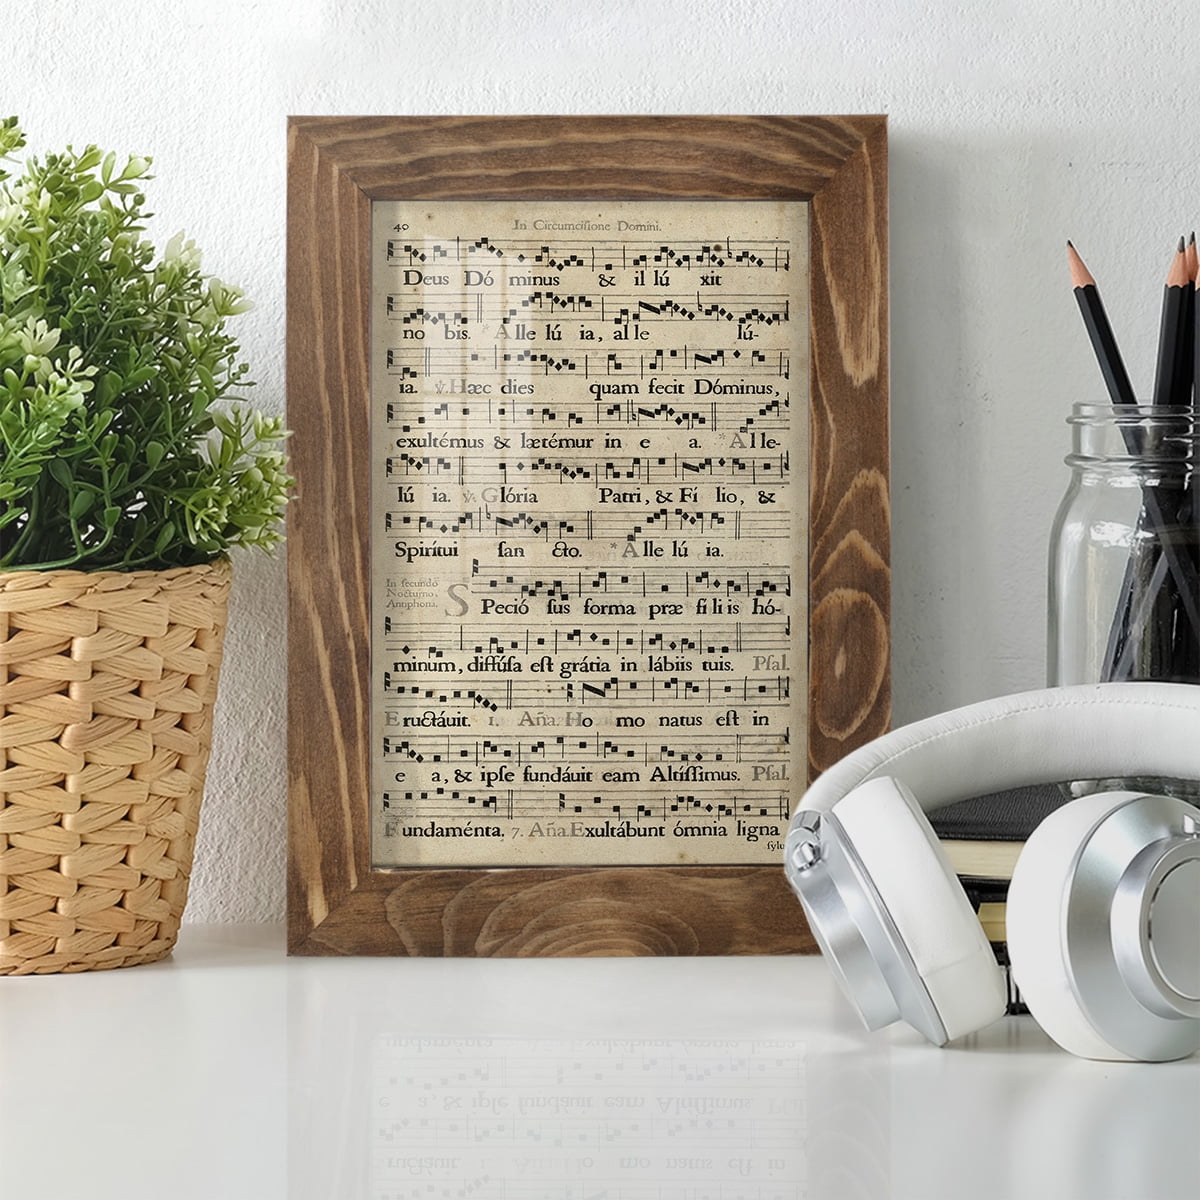 40 In Circumcisione Domini.
Deus Dó minus & il lú xit
no bis. * Alle lú ia, al le lú-
ia. ℣. Hæc dies quam fecit Dóminus,
exultémus & lætémur in e a. * Al le-
lú ia. ℣. Glória Patri, & Fí lio, &
Spirítui san cto. * Alle lú ia.
In secundo
Nocturno,
Antiphona.
SPeció sus forma præ fi li is hó-
minum, diffúsa est grátia in lábiis tuis. Psal.
Eructáuit. 1. Aña. Ho mo natus est in
e a, & ipse fundáuit eam Altíssimus. Psal.
Fundaménta. 7. Aña Exultábunt ómnia ligna